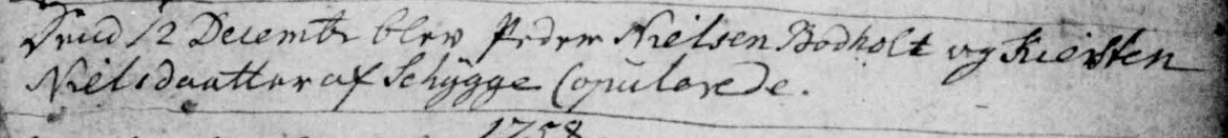 Dend 12 Decembr blev Peder Nielsen Bodholt og Kiersten
Nielsdaatter af Schygge Copulerede.
1758